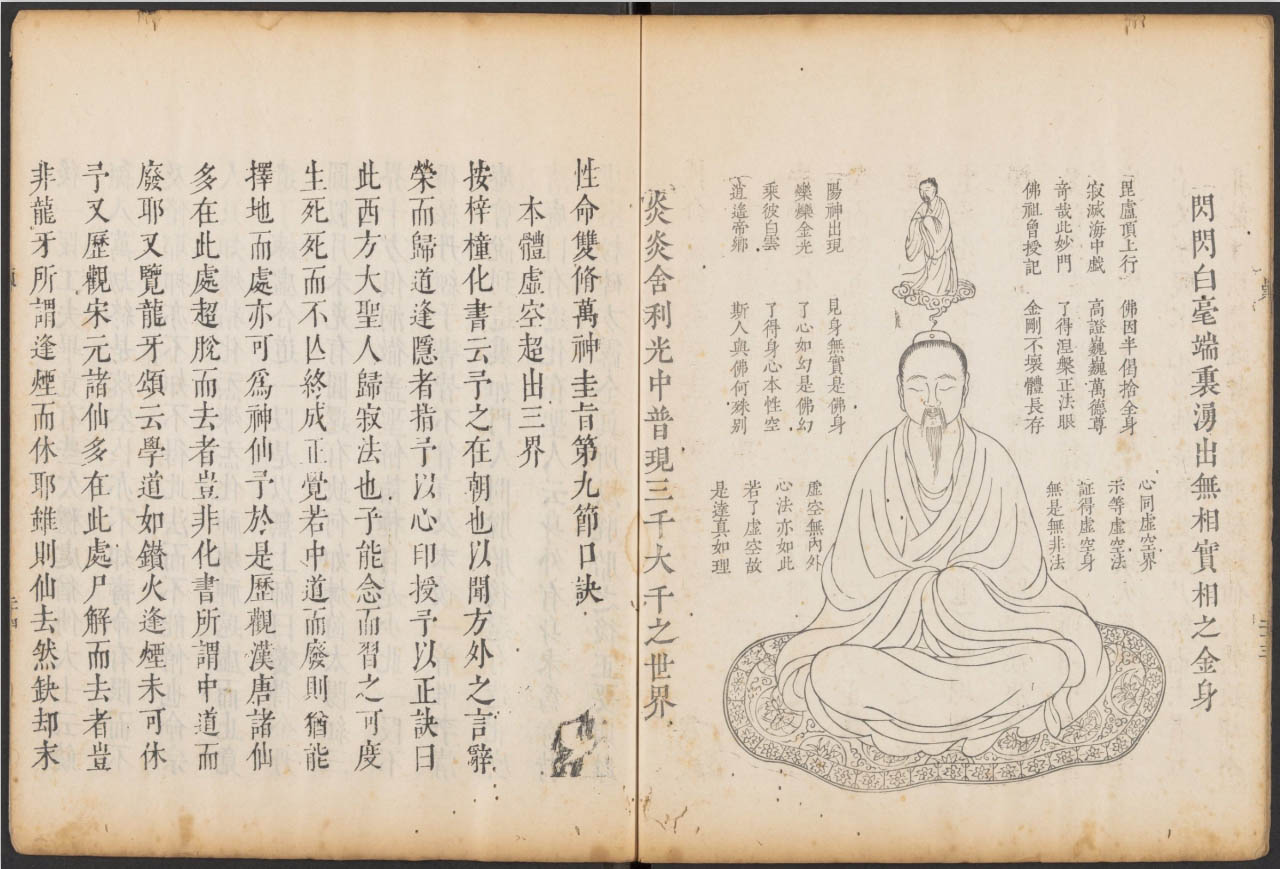 閃閃白毫端裏湧出無相實相之金身
毘盧頂上行
寂滅海中戲
奇哉此妙門
佛祖曾授記
佛因半偈捨全身
高證巍巍萬德尊
了得涅槃正法眼
金剛不壞體長存
心同虛空界
示等虛空法
証得虛空身
無是無非法
陽神出現
爍爍金光
乘彼白雲
逍遙帝鄉
見身無實是佛身
了心如幻是佛幻
了得身心本性空
斯人與佛何殊別
虛空無內外
心法亦如此
若了虛空故
是達真如理
炎炎舍利光中普現三千大千之世界
性命雙脩萬神圭旨第九節口訣
本體虛空超出三界
按梓橦化書云予之在朝也以聞方外之言辭
榮而歸道逢隱者指予以心印授予以正訣曰
此西方大聖人歸寂法也子能念而習之可度
生死死而不亾終成正覺若中道而廢則猶能
擇地而處亦可爲神仙予於是歷觀漢唐諸仙
多在此處超脫而去者豈非化書所謂中道而
廢耶又覽龍牙頌云學道如鑚火逢煙未可休
予又歷觀宋元諸仙多在此處尸解而去者豈
非龍牙所謂逢煙而休耶雖則仙去然缺却末